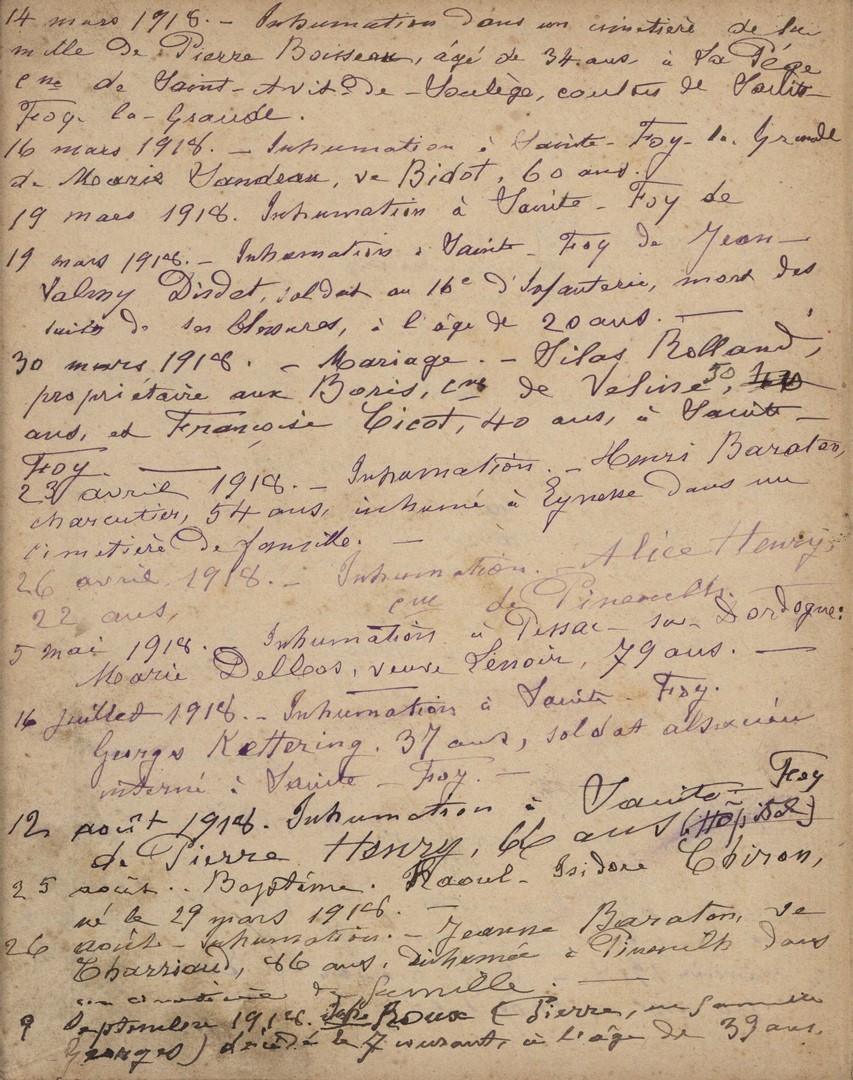 14 mars 1918. – Inhumation dans un cimetière de fa
mille de Pierre Boisseau, âgé de 34 ans à La Pège
cne de Saint-Avit-de-Soulège, canton de Sainte-
Foy-la-Grande.
16 mars 1918. – Inhumation à Sainte-Foy-la-Grande
de Marie Sandeau, ve Bidot, 60 ans.
19 mars 1918. Inhumation à Sainte-Foy de
19 mars 1918. – Inhumation à Sainte-Foy de Jean-
Valmy Disdet, soldat au 16e d'Infanterie, mort des
suites de ses blessures, à l'âge de 20 ans. —
30 mars 1918. – Mariage. – Silas Rolland,
propriétaire aux Boris, cne de Veline, 50
ans, et Françoise Cicot, 40 ans, à Sainte-
Foy. —
23 avril 1918. – Inhumation. – Henri Baraton,
charcutier, 54 ans, inhumé à Eynesse dans un
cimetière de famille. —
26 avril 1918. – Inhumation. – Alice Henry,
22 ans, cne de Pineuilh.
5 mai 1918. Inhumation à Pessac-sur-Dordogne:
Marie Delbos, veuve Lenoir, 79 ans. —
16 juillet 1918. – Inhumation à Sainte-Foy.
Georges Kettering. 37 ans, soldat alsacien
interné à Sainte-Foy. —
12 août 1918. Inhumation à Sainte-Foy
de Pierre Henry, 66 ans (Hôpital)
25 août. Baptême. Raoul-Isidore Chiron,
né le 29 mars 1918. —
26 août – Inhumation. – Jeanne Baraton, ve
Charriaud, 86 ans, inhumée à Pineuilh dans
un cimetière de famille. —
9 septembre 1918. Roux (Pierre, en famille
Georges) décédé le 7 courant, à l'âge de 39 ans.